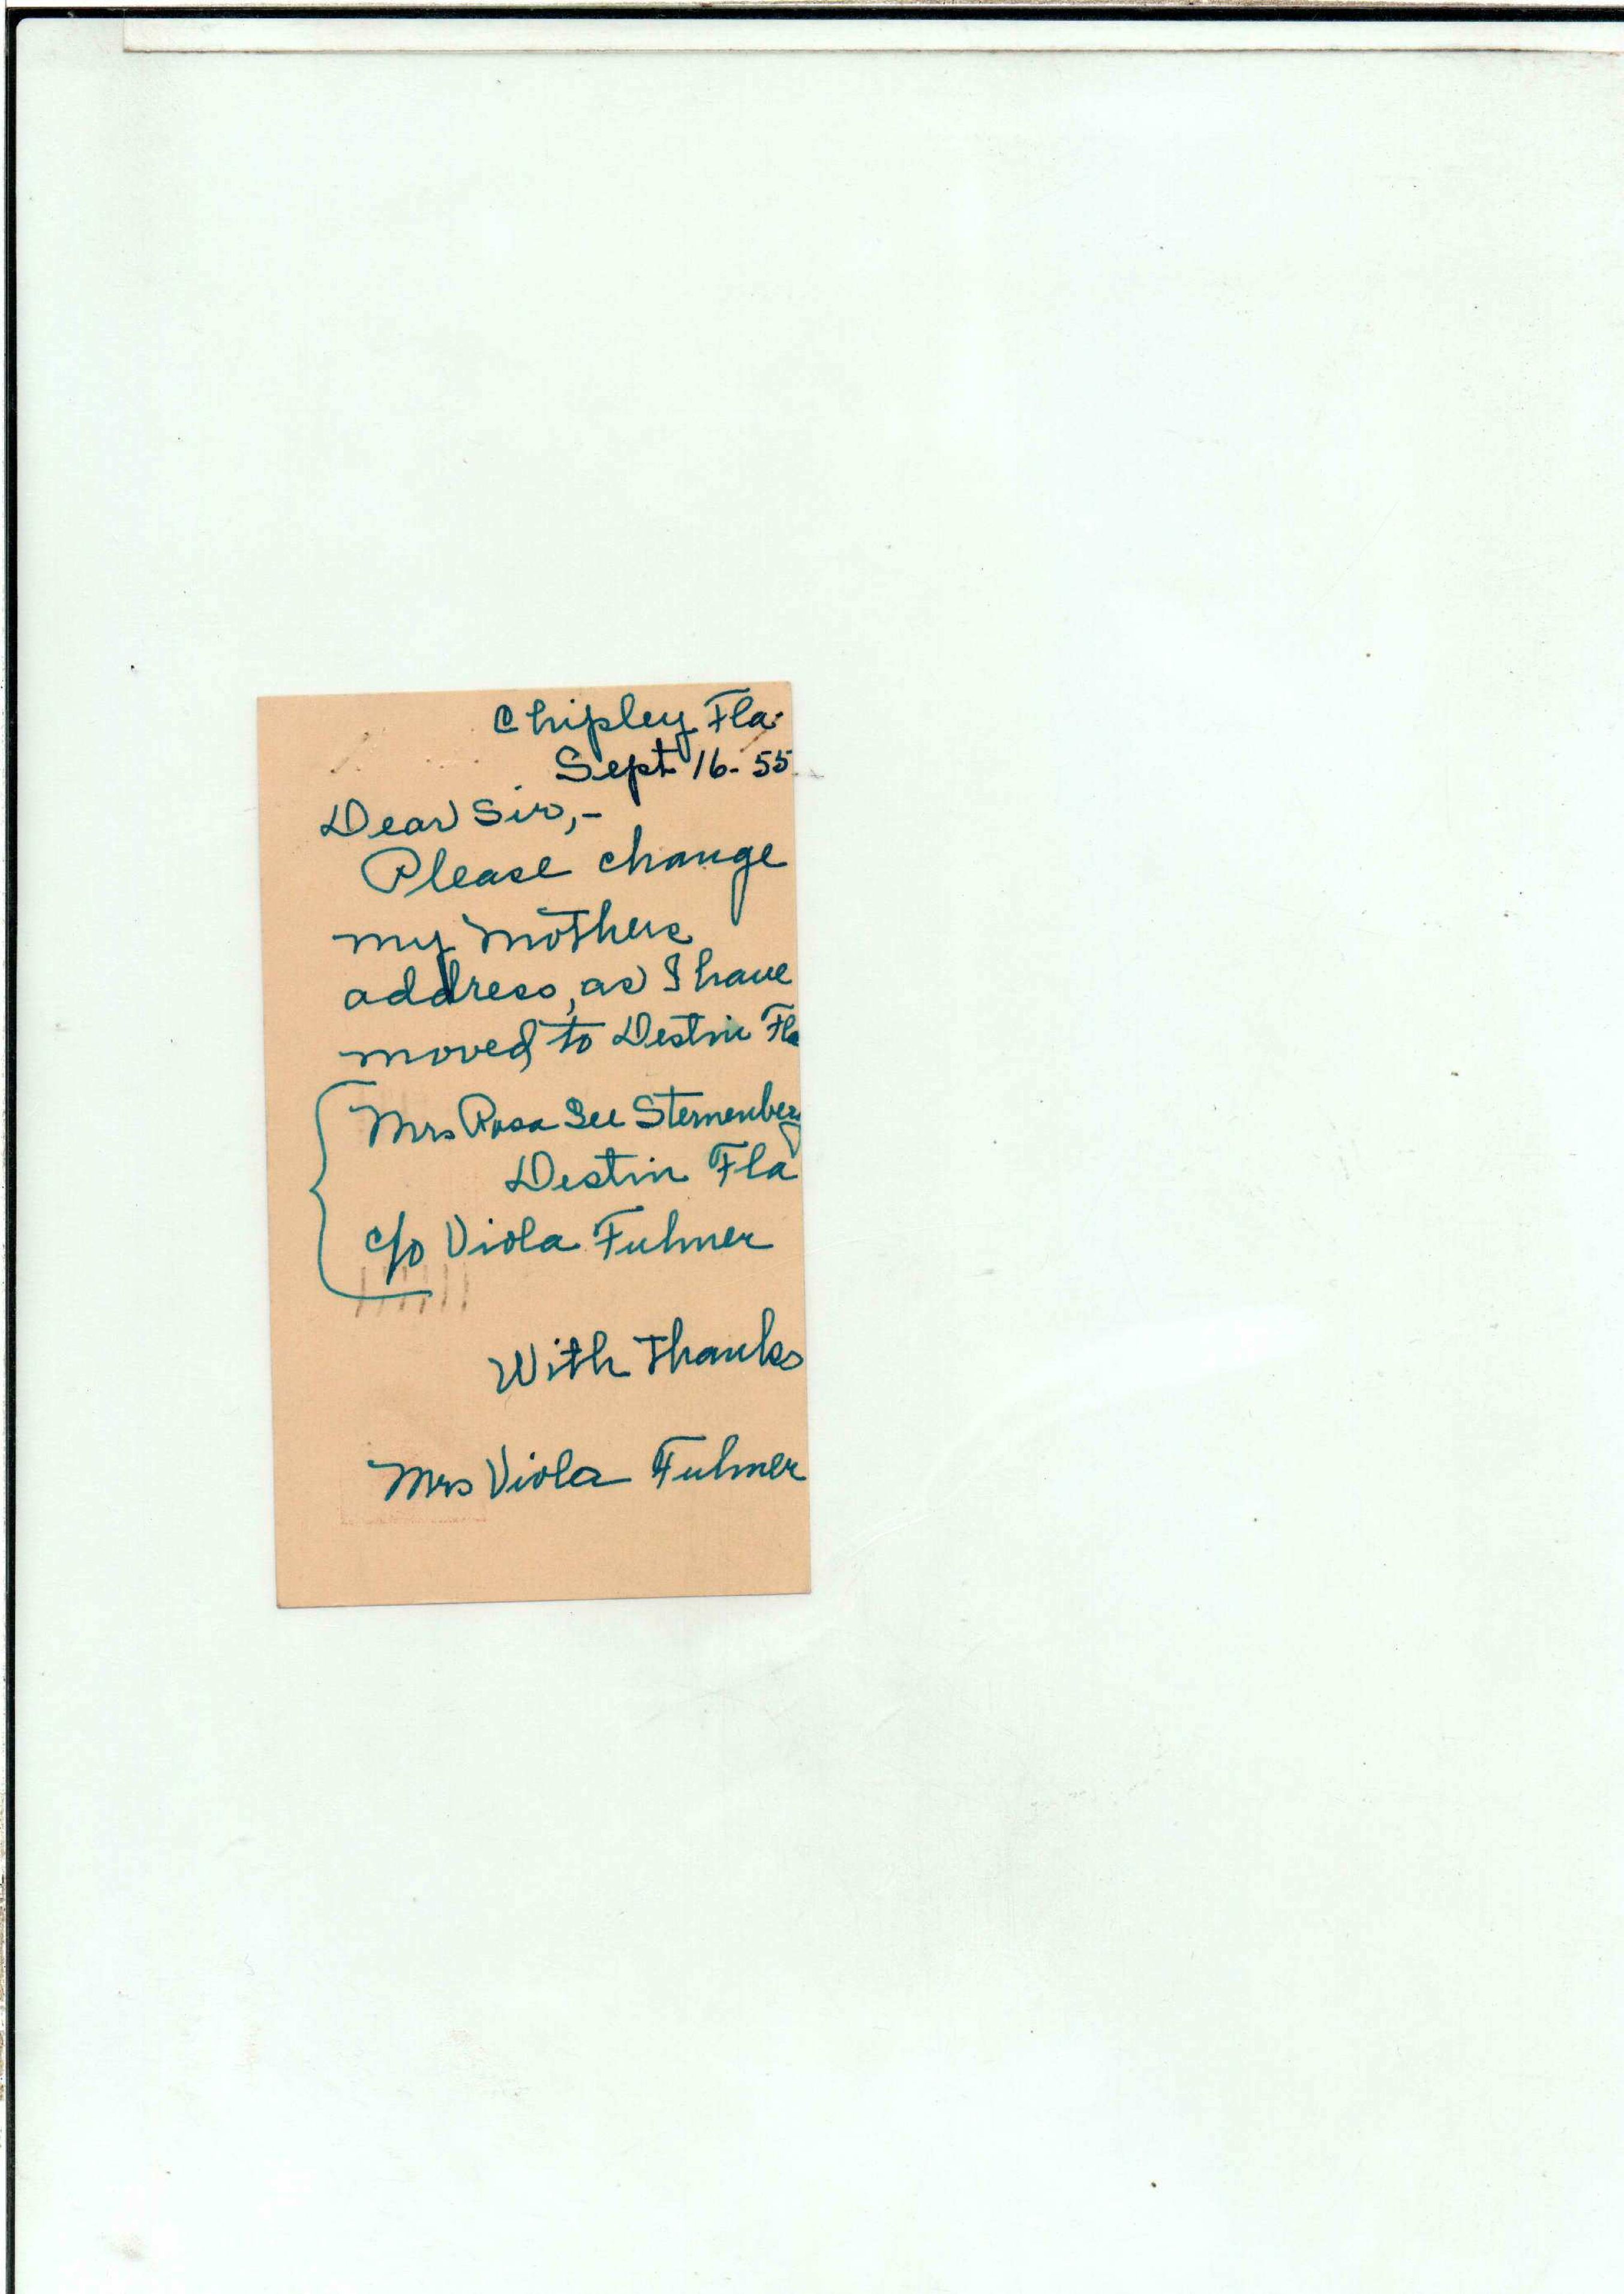 Chipley Fla.
Sept 16-55
Dear Sir,-
Please change
my mothers
address, as I have
moved to Destin Fla
Mrs Rosa Lee Sternenberg
Destin Fla
c/o Viola Fulmer
With Thanks
Mrs Viola Fulmer